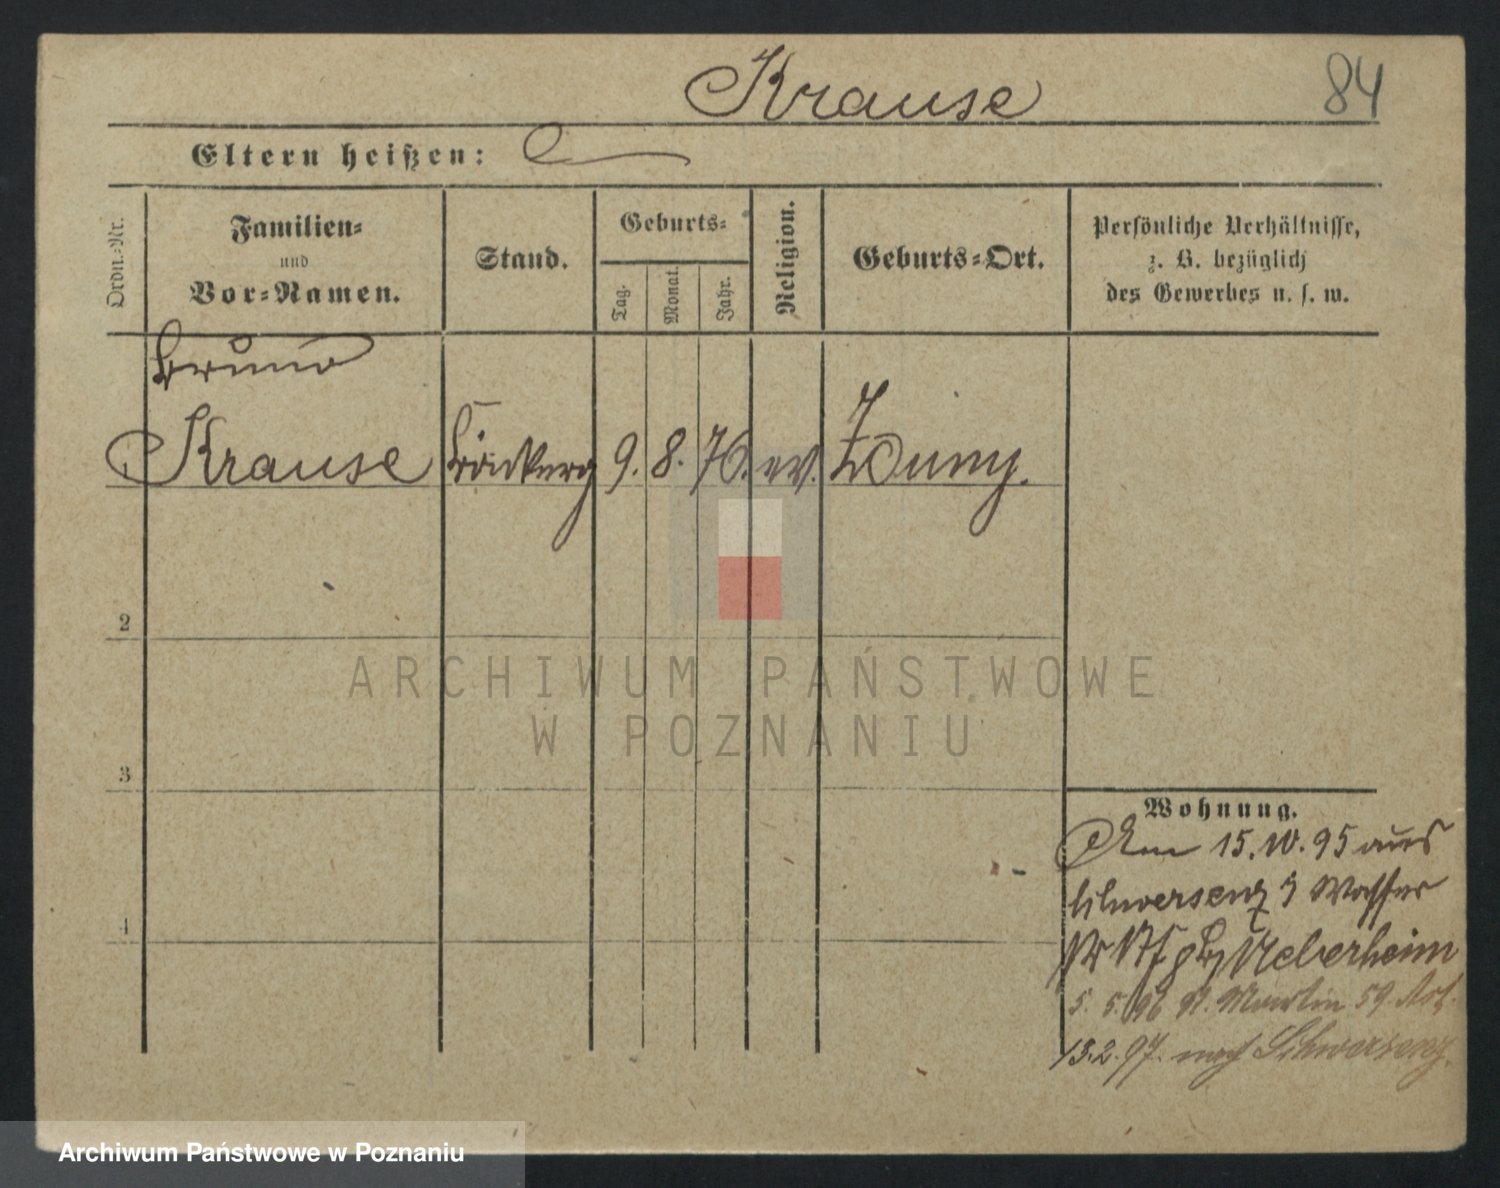 Krause
84
Eltern heißen:
Ordn.-Nr.
Familien-
und
Vor-Namen.
Stand.
Geburts-
Tag.
Monat.
Jahr.
Religion.
Geburts-Ort.
Persönliche Verhältnisse,
z. B. bezüglich
des Gewerbes u. s. w.
Bruno
Krause
9. 8. 76. ev. Zduny.
2
3
4
ARCHIWUM PAŃSTWOWE
W POZNANIU
Wohnung.
Am 15.10.95 aus
Schwersenz Wasser
Ueberheim
5. 5. 96 St. Martin 59.
13.2.97. nach Schwersenz.
Archiwum Państwowe w Poznaniu